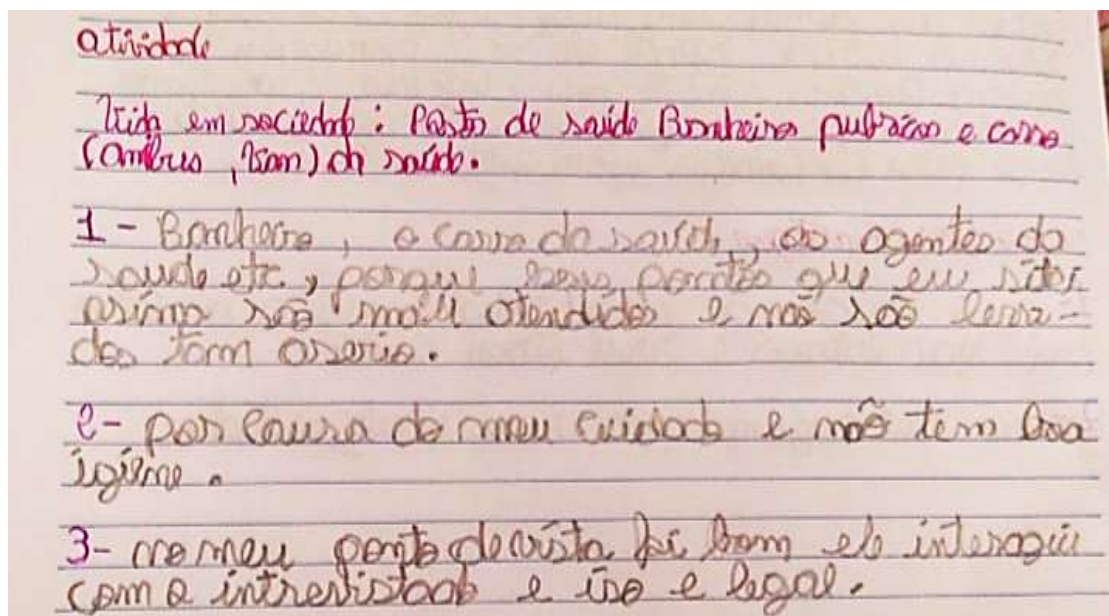 atividade
Vida em sociedade: Posto de saúde Banheiro publicos e carro
(ambus, Van) da saúde.
1- Banheiro, o carro da saúde, os agentes da
saude etc, porque esses pontos que eu sitei
asima são mau atendidos e não são leva-
dos tom aserio.
2- por causa do mau cuidado e não tem boa
igiene.
3- no meu ponto de vista foi bom ele interagiu
com o intrevistado e iso e legal.